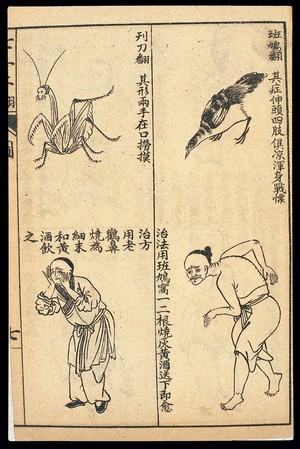 班鳩翻
其症伸頭四肢俱凉渾身戰慄
治法用班鳩窩一二根燒灰黃酒送下即愈
刋刀翻
其形兩手在口撈摸
治方
用老
鸛鼻
燒為
細末
和黃
酒飲
之
七